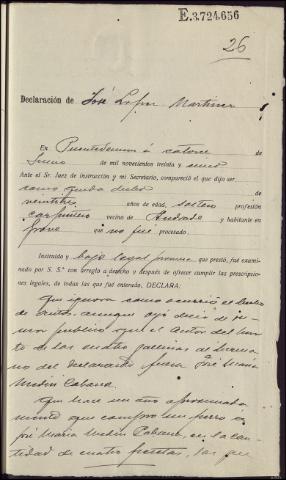 E.3.724.656
26
Declaración de José Lopez Martinez
En Puentedeume á catorce de
Junio de mil novecientos treinta y cinco
Ante el Sr. Juez de instrucción y mi Secretario, compareció el que dijo ser
como queda dicho de
veintitres años de edad, soltero profesión
carpintero vecino de Andrade y habitante en
que no fué procesado.
Instruido y bajo legal promesa que prestó, fué examinado
por S. S.ª con arreglo a derecho y después de ofrecer cumplir las prescripciones
legales, de todas las que fué enterado, DECLARA:
Que ignora como ocurrió el hecho
de autos, aunque oyó decir de ru-
mor publico que el autor del hurto
de las cuatro gallinas al herma
no del declarante fuera José Maria
Medin Cabana.
Que hace un año aproximada
mente que compro un perro á
José Maria Medin Cabana, en la can-
tidad de cuatro pesetas, las que